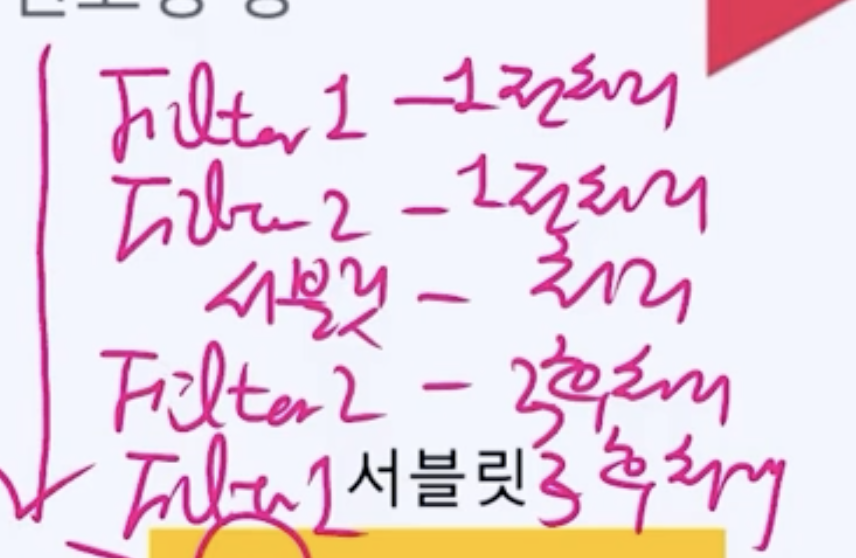 Filter 1 - 1 전처리
Filter 2 - 1 전처리
서블릿 - 처리
Filter 2 - 3 후처리
Filter 1 서블릿 3 후처리